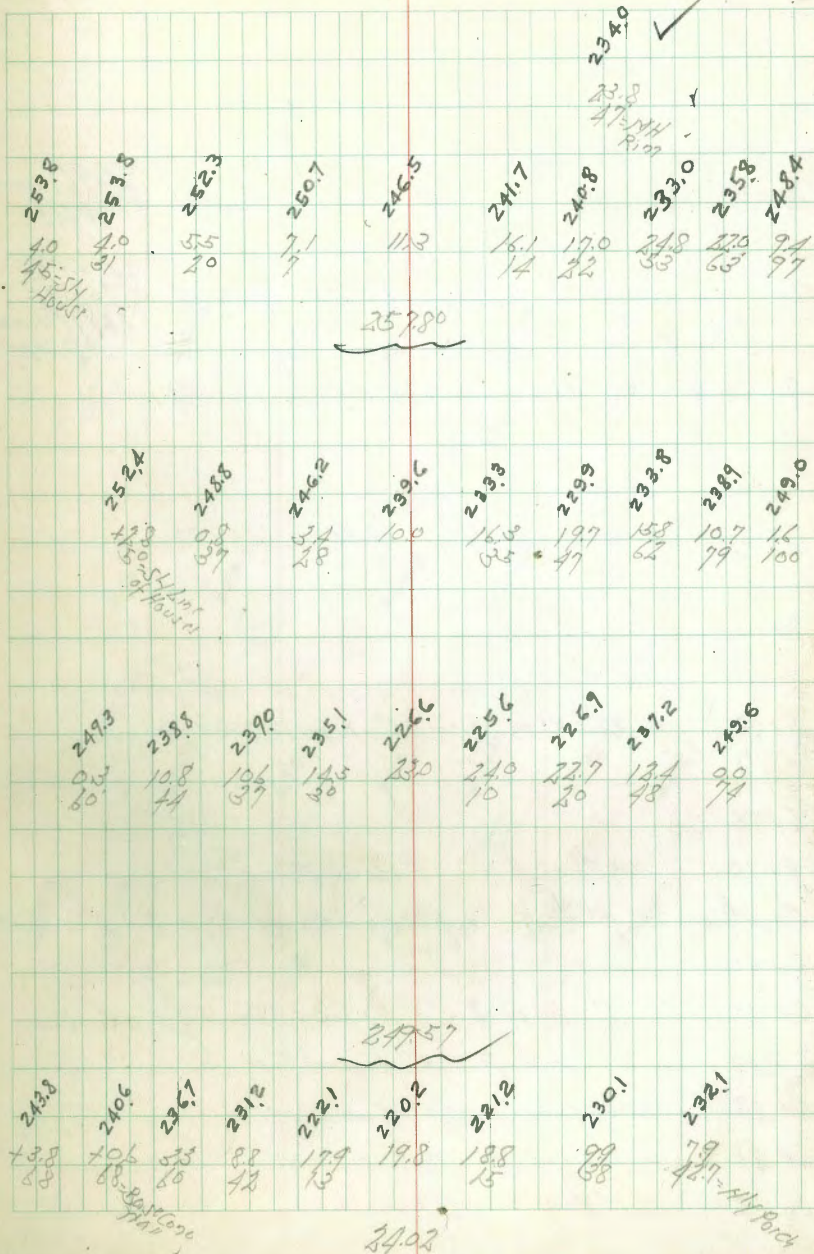 234.0
23.8
47=MH
Rim
253.8 253.8 252.3 250.7 246.5 241.7 240.8 233.0 235.8 248.4
4.0 4.0 5.5 7.1 11.3 16.1 17.0 24.8 22.0 9.4
45= 31 20 7 14 22 53 63 97
House
257.80
252.4 248.8 246.2 239.6 233.3 229.9 233.8 238.9 248.0
+2.8 0.8 3.4 10.0 16.3 19.7 15.8 10.7 1.6
50= 37 28 35 47 62 79 100
of Houses
249.3 238.8 239.0 235.1 226.6 225.6 226.9 237.2 249.6
0.3 10.8 10.6 14.5 23.0 24.0 22.7 12.4 0.0
60 44 37 30 10 20 48 74
249.57
243.8 240.6 236.7 231.2 222.1 220.2 221.2 230.1 232.1
+3.8 +0.6 3.3 8.8 17.9 19.8 18.8 9.9 7.9
68 68=Base Conc 60 42 13 15 38 42.7= Porch
Wall